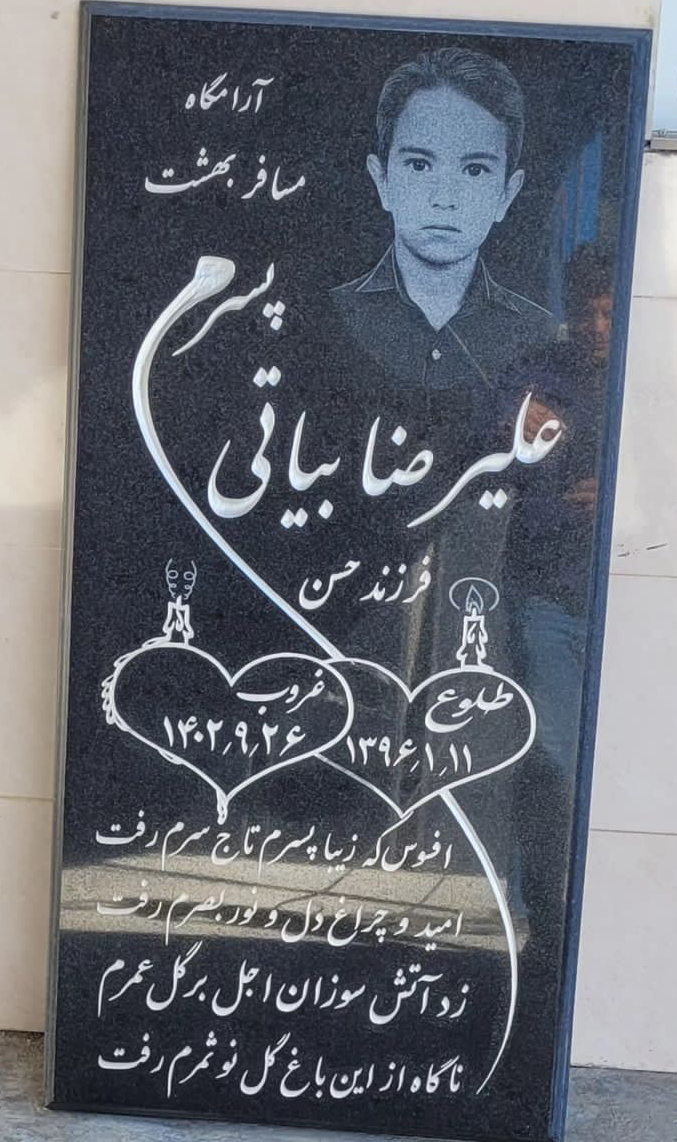 آرامگاه
مسافر بهشت
پسرم
علیرضا بیاتی
فرزند حسن
طلوع
۱۳۹۶٫۱٫۱۱
غروب
۱۴۰۲٫۹٫۲۶
افسوس که زیبا پسرم تاج سرم رفت
امید و چراغ دل و نور بصرم رفت
زد آتش سوزان اجل بر گل عمرم
ناگاه از این باغ گل نو ثمرم رفت